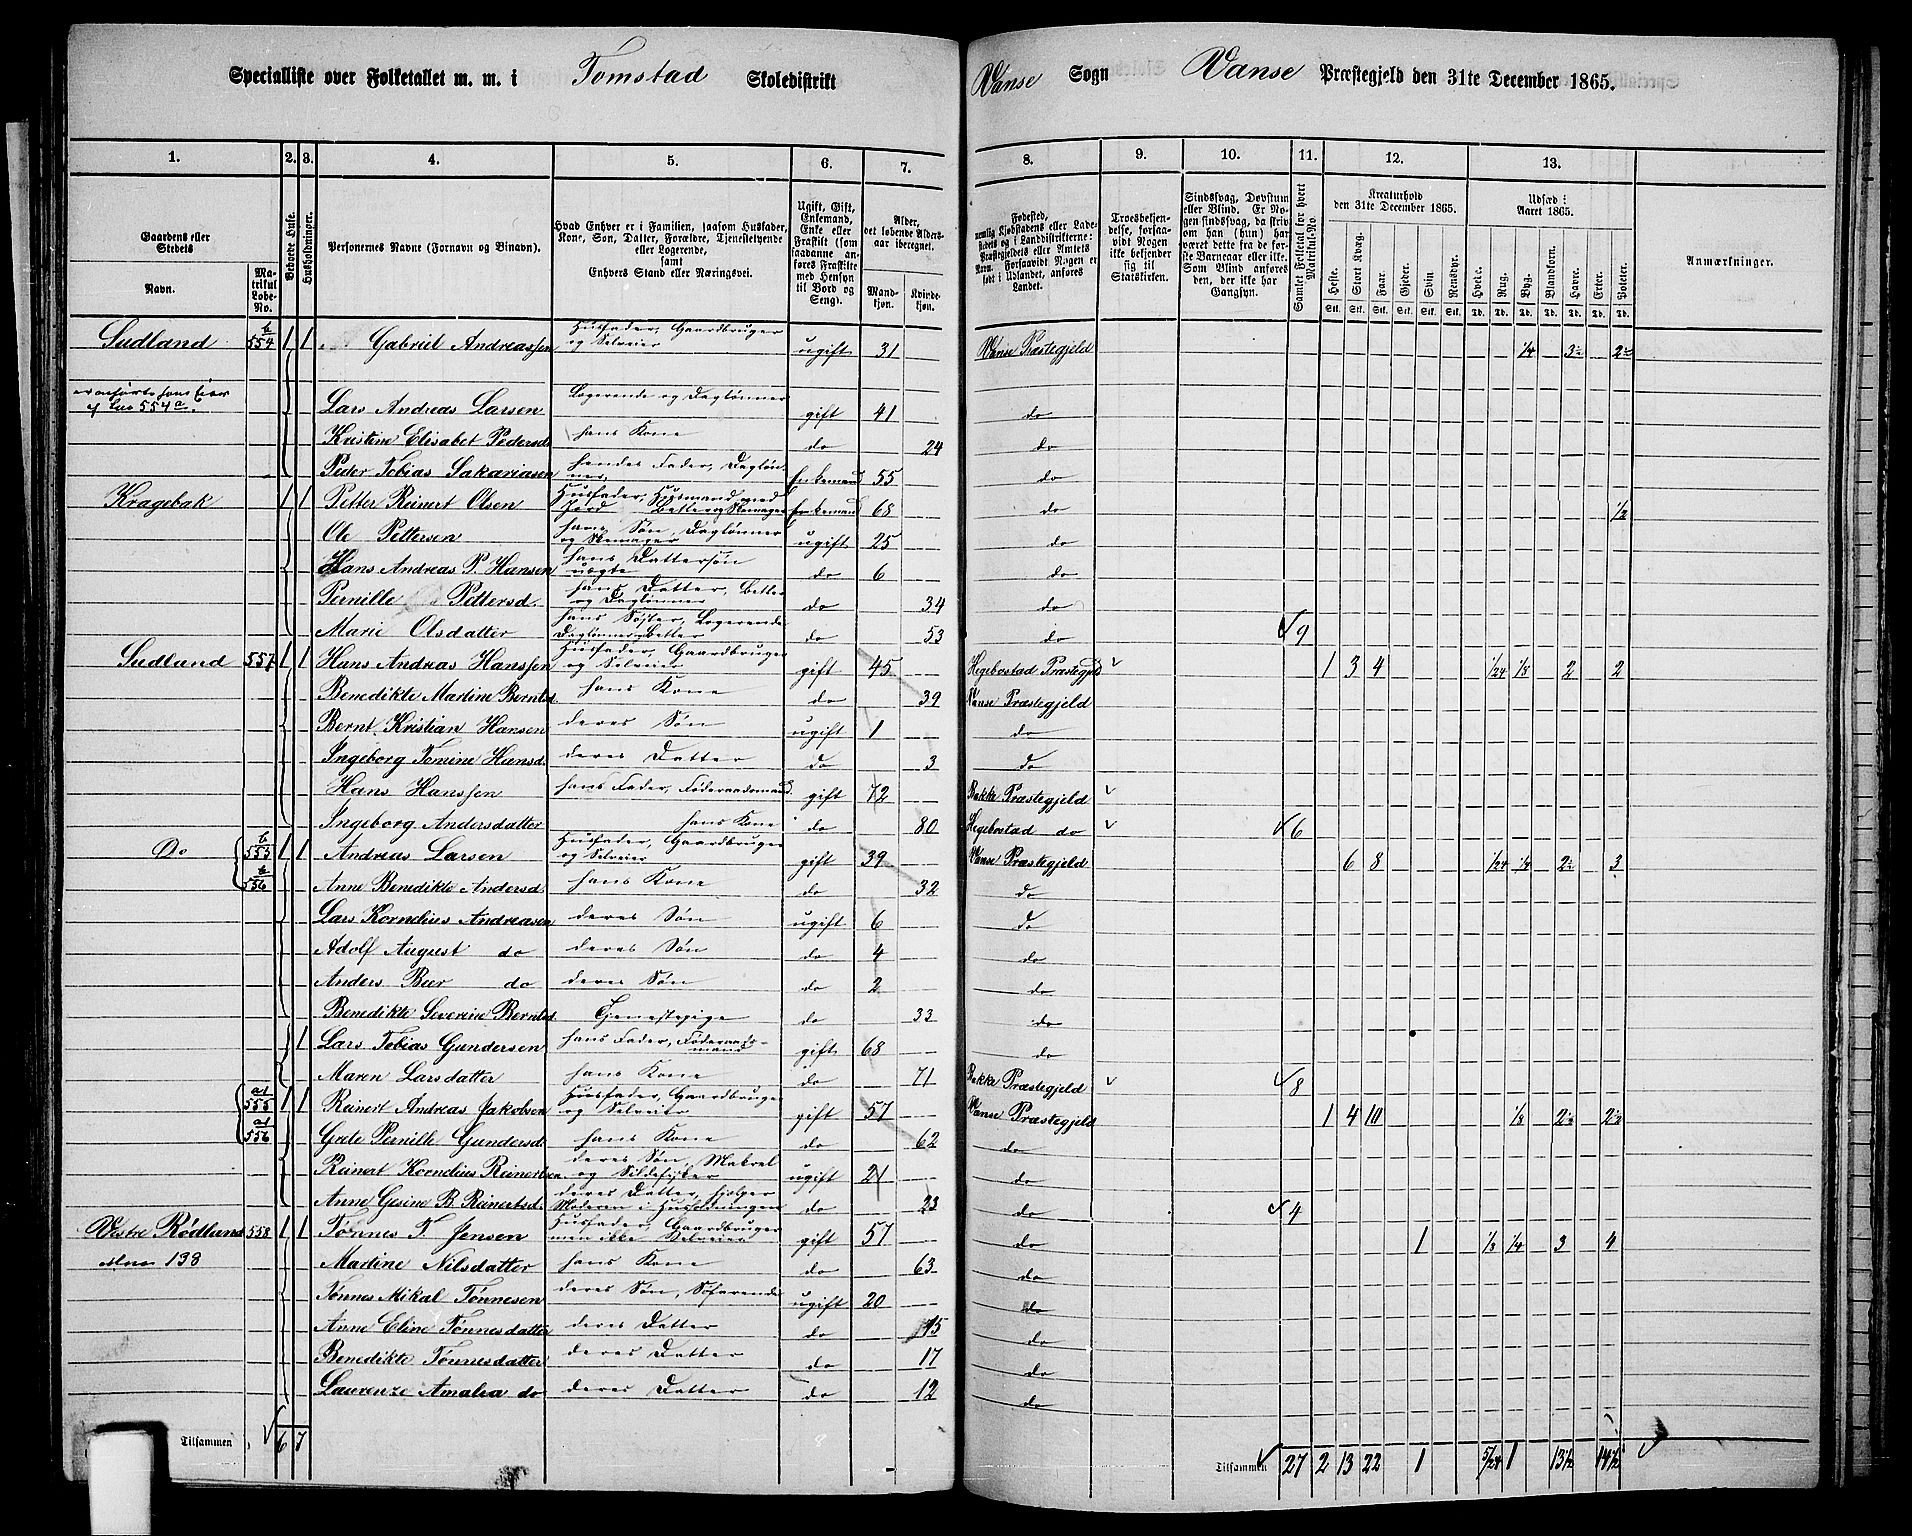 Specialliste over Folketallet m. m. i Tomstad Skoledistrikt
Vanse Sogn Vanse Præstegjeld den 31te December 1865.
1. 2. 3. 4. 5. 6. 7. 8. 9. 10. 11. 12. 13.
Gaardens eller Stedets
Navn.
Matrikul Løbe-No.
Beboede Huse.
Husholdninger.
Personernes Navne (Fornavn og Binavn).
Hvad Enhver er i Familien, saasom Husfader, Kone, Søn, Datter, Forældre, Tjenestetyende eller Logerende, samt Enhvers Stand eller Næringsvei.
Ugift, Gift, Enkemand, Enke eller Fraskilt (som saadanne anføres Fraskilte med Hensyn til Bord og Seng).
Alder, det løbende Aldersaar iberegnet.
Mandkjøn.
Kvindekjøn.
Fødested,
Troesbekjendelse, forsaavidt Nogen ikke bekjender sig til Statskirken.
Sindssvag, Døvstum eller Blind. Er Nogen sindssvag, da skrives om han (hun) har været dette fra de første Barneaar eller ikke. Som Blind anføres den, der ikke har Gangsyn.
Samlet Folketal for hvert Matrikul-No.
Kreaturhold den 31te December 1865.
Heste. Stort Kvæg. Faar. Gjeder. Svin. Rensdyr.
Udsæd i Aaret 1865.
Hvede. Rug. Byg. Blandkorn. Havre. Erter. Poteter.
Anmærkninger.
Sudland 554 b 1 1 Gabriel Andreassen Husfader, Gaardbruger og Selveier ugift 31 Vanse Præstegjeld 1/4 3½ 2½
Lars Andreas Larsen Logerende og Daglønner gift 41 do
Kristine Elisabet Pedersd. hans Kone do 24 do
Peder Tobias Sakariasen hendes Fader, Daglønner, Enkemand 55 do
Kragebak 1 1 Petter Reinert Olsen Husfader, Husmand med Jord Betler og Skomager Enkemand 68 do 1/2
Ole Pettersen hans Søn, Daglønner og Skomager ugift 25 do
Hans Andreas P. Hansen hans Dattersøn uægte do 6 do
Pernille Pettersd. hans Datter, Betler og Daglønner do 34 do
Marie Olsdatter hans Søster, Logerende Daglønner og Betler do 53 do 9
Sudland 557 1 1 Hans Andreas Hanssen Husfader, Gaardbruger og Selveier gift 45 Hegebostad Præstegjeld 1 3 4 1/24 1/8 2 2
Benedikte Martine Berntsd. hans Kone do 39 Vanse Præstegjeld
Bernt Kristian Hansen deres Søn ugift 1 do
Ingeborg Tomine Hansd. deres Datter do 3 do
Hans Hanssen hans Fader, Føderaadsmand gift 72 Bakke Præstegjeld
Ingeborg Andersdatter hans Kone do 80 Hegebostad do 6
Do 553 b 1 1 Andreas Larsen Husfader, Gaardbruger og Selveier gift 39 Vanse Præstegjeld 6 8 1/24 1/4 2½ 3
556 b Anne Benedikte Andersd. hans Kone do 32 do
Lars Kornelius Andreasen deres Søn ugift 6 do
Adolf August do deres Søn do 4 do
Anders Beer do deres Søn do 2 do
Benedikte Severine Berntsd. Tjenestepige do 33 do
1 Lars Tobias Gundersen hans Fader, Føderaadsmand gift 68 do
Maren Larsdatter hans Kone do 71 Bakke Præstegjeld 8
555 a1 1 1 Reinert Andreas Jakobsen Husfader, Gaardbruger og Selveier gift 57 Vanse Præstegjeld 1 4 10 1/8 2½ 2½
556 a1 Grete Pernille Gundersd. hans Kone do 62 do
Reinert Kornelius Reinertsen deres Søn, Makrel og Sildefisker ugift 21 do
Anne Gesine B. Reinertsd. deres Datter, hjælper Moderen i Husholdningen do 23 do 4
Vestre Rødland 558 1 1 Tønnes T. Jensen Husfader, Gaardbruger men ikke Selveier gift 57 do 1 1/8 1/4 3 4
138 Martine Nilsdatter hans Kone do 63 do
Tønnes Mikal Tønnesen deres Søn, Søfarende ugift 20 do
Anne Eline Tønnesdatter deres Datter do 15 do
Benedikte Tønnesdatter deres Datter do 17 do
Laurenze Amalia do deres Datter do 12 do
Tilsammen 6 7
Tilsammen 27 2 13 22 1 5/24 1 13½ 14½